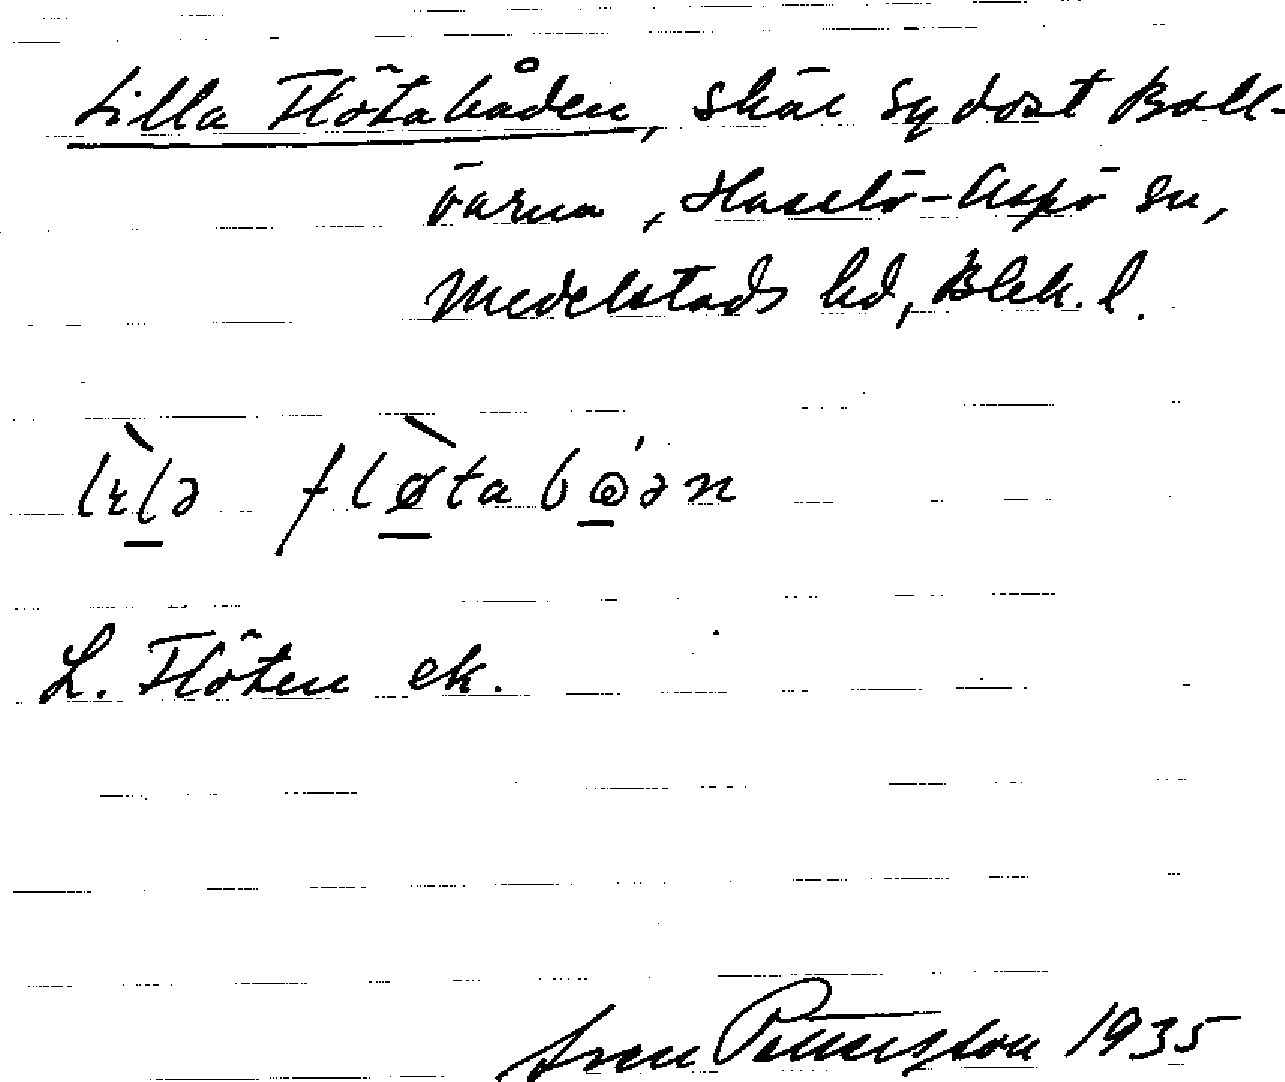 Lilla Flötabåden, skär sydost Boll-
öarna, Hasslö-Aspö sn,
Medelstads hd, Blek. l.
lɩlə fløtabɷ́ən
L. Flöten ek.
Sven Pettersson 1935